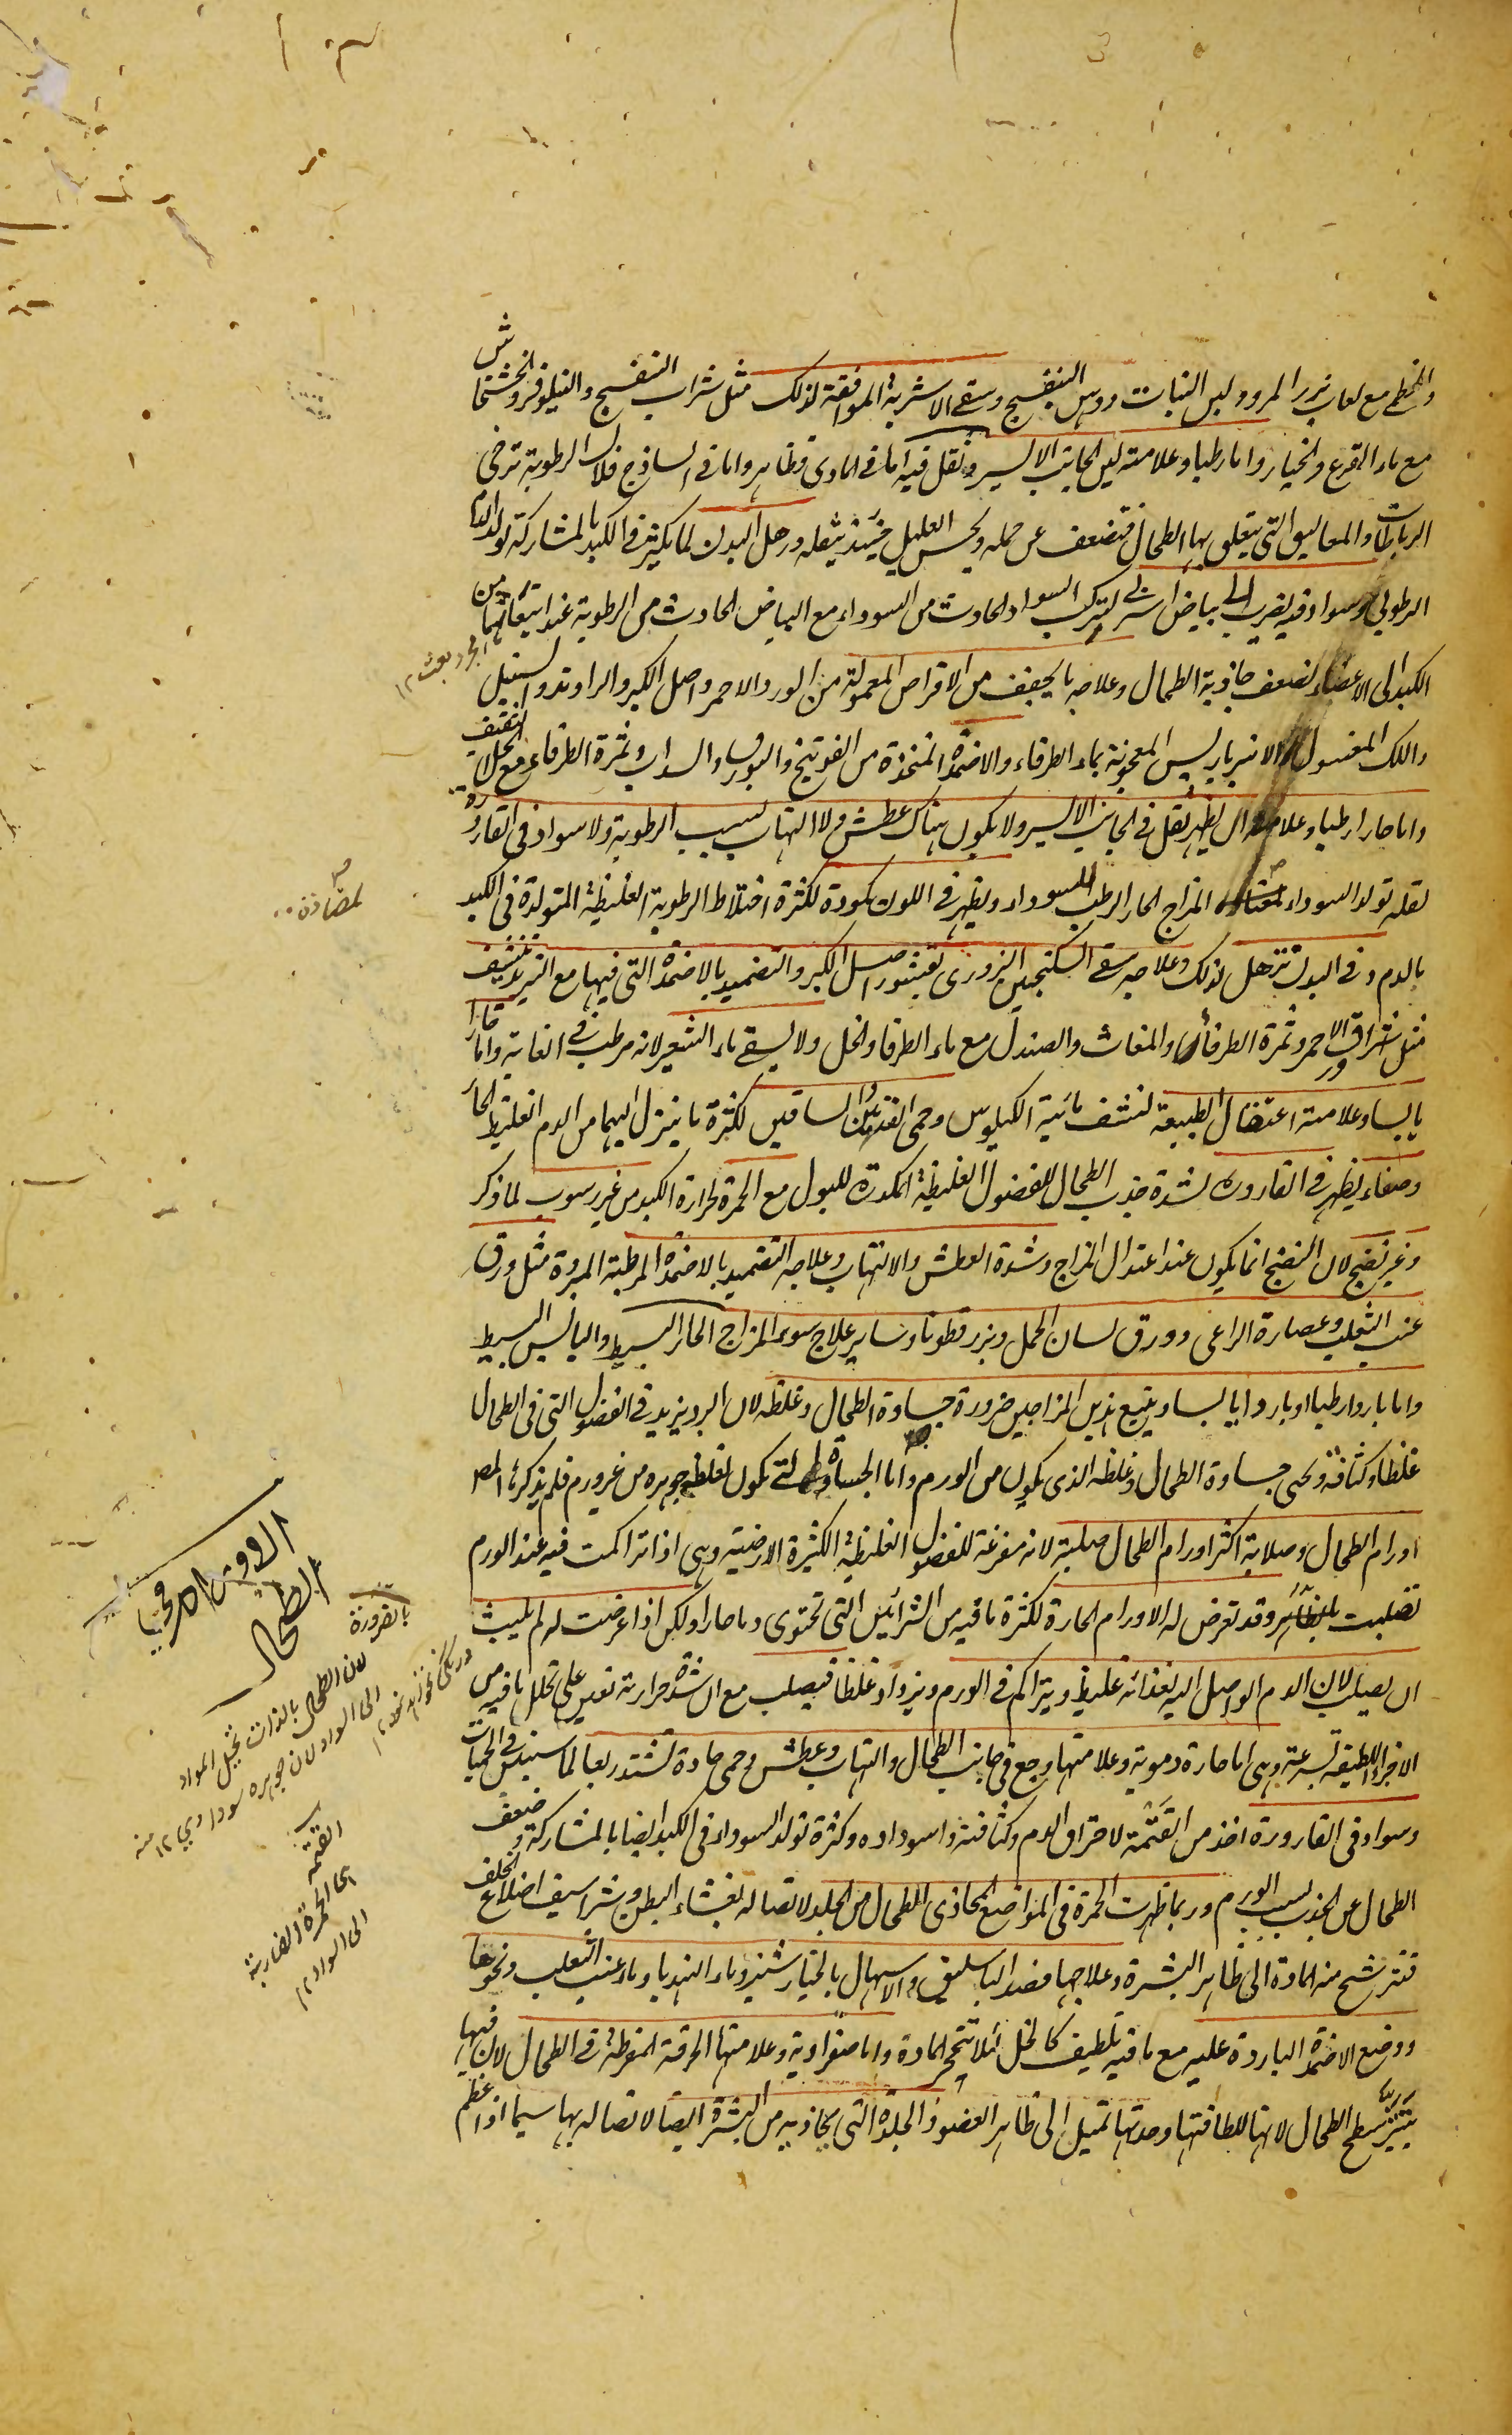 والخطمى مع لعاب بزر المرو ولبن النبات ودهن البنفسج وسقى الاشربة الموافقة لذلك مثل شراب البنفسج والنيلوفر والخشخاش
مع ماء القرع والخيار واما رطبا وعلامته لين الجانب الايسر وثقل فيه اما فى المادى فظاهر واما فى الساذج فلان الرطوبة ترخى
الرباطات والمعاليق التى يتعلق بها الطحال فتضعف عن حمله ويحس العليل حينئذ بثقله ورهل البدن لما يكثر فى الكبد بالمشاركة تولد الدم
الرطوبى وسواد فيه يضرب الى بياض اسربى لتركب السواد الحادث من السوداء مع البياض الحادث من الرطوبة عند انبعاثهما من
الكبد الى الاعضاء لضعف جاذبة الطحال وعلاجه ما يجفف من الاقراص المعمولة من الورد الاحمر واصل الكبر والراوند والسنبل
واللك المغسول والانبرباريس المعجونة بماء الطرفاء والاضمدة المتخذة من الفوتنج والبورق والسداب وثمرة الطرفاء مع الخل الثقيف
واما حارا رطبا وعلامته ان يظهر ثقل فى الجانب الايسر ولا يكون هناك عطش ولا التهاب بسبب الرطوبة ولا سواد فى القارورة
لقلة تولد السوداء لمضادة المزاج الحار الرطب للسوداء ويظهر فى اللون كمودة لكثرة اختلاط الرطوبة الغليظة المتولدة فى الكبد
بالدم وفى البدن ترهل لذلك وعلاجه سقى السكنجبين البزورى بقشور اصل الكبر والتضميد بالاضمدة التى فيها مع التبريد تنشيف
مثل الورد الاحمر وثمرة الطرفاء والمغاث والصندل مع ماء الطرفا والخل ولا يسقى ماء الشعير لانه مرطب فى الغاية واما حارا
يابسا وعلامته اعتقال الطبيعة لنشف مائية الكيلوس وحمى القدمين والساقين لكثرة ما ينزل اليهما من الدم الغليظ الحار
وصفاء يظهر فى القارورة لشدة جذب الطحال للفضول الغليظة المكدرة للبول مع الحمرة لحرارة الكبد من غير رسوب لما ذكر
وغير نضج لان النضج انما يكون عند اعتدال المزاج وشدة العطش والالتهاب وعلاجه التضميد بالاضمدة المرطبة المبردة مثل ورق
عنب الثعلب وعصارة الراعى وورق لسان الحمل وبزر قطونا وساير علاج سوء المزاج الحار البسيط واليابس البسيط
واما باردا رطبا او باردا يابسا ويتبع هذين المزاجين ضرورة جساوة الطحال وغلظه لان البرد يزيد فى الفضول التى فى الطحال
غلظا وكثافة ويحس جساوة الطحال وغلظه الذى يكون من الورم واما الجساوة التى تكون لغلظ جوهره من غير ورم فلم يذكره المصـ
اورام الطحال وصلابته اكثر اورام الطحال صلبة لانه مفرغة للفضول الغليظة الكثيرة الارضية وهى اذا تراكمت فيه عند الورم
تصلبت وقد تعرض له الاورام الحارة لكثرة ما فيه من الشرائين التى تحتوى دما حارا ولكن اذا عرضت له لم يلبث
ان يصلب لان الدم الواصل اليه لغذائه غليظ ويتراكم فى الورم ويزداد غلظا فيصلب مع ان شدة حرارته تعين على تحلل ما فيه من
الاجزاء اللطيفة بسرعة وهى اما حارة دموية وعلامتها وجع فى جانب الطحال والتهاب وعطش وحمى حادة تشتد ربعا لما سنبين فى الحميات
وسواد فى القارورة اخذ من القتمة لاحتراق الدم وكثافته واسوداده وكثرة تولد السوداء فى الكبد ايضا بالمشاركة وضعف
الطحال عن الجذب بسبب الورم وربما ظهرت الحمرة فى المواضع المحاذى للطحال من الجلد لاتصاله بغشاء البطن وبشراسيف اضلاع الخلف
فتترشح منه المادة الى ظاهر البشرة وعلاجها فصد الباسليق والاسهال بالخيارشنبر وماء الهندبا وماء عنب الثعلب ونحوها
ووضع الاضمدة الباردة عليه مع ما فيه تلطيف كالخل لئلا تتحجر المادة واما صفراوية وعلامتها الحرقة المفرطة فى الطحال لان فيها
يتبثر سطح الطحال لانها للطافتها وحدتها تميل الى ظاهر العضو والجلدة التى يحاذيه من البشرة ايضا لاتصاله بها سيما اذا عظم
لمضادة
الطحال
بالضرورة
لان الطحال بالذات تحيل المواد
الى السواد لان جوهره سوداوى ١٢ منه
القتمة
هى الحمرة الضاربة
الى السواد ١٢